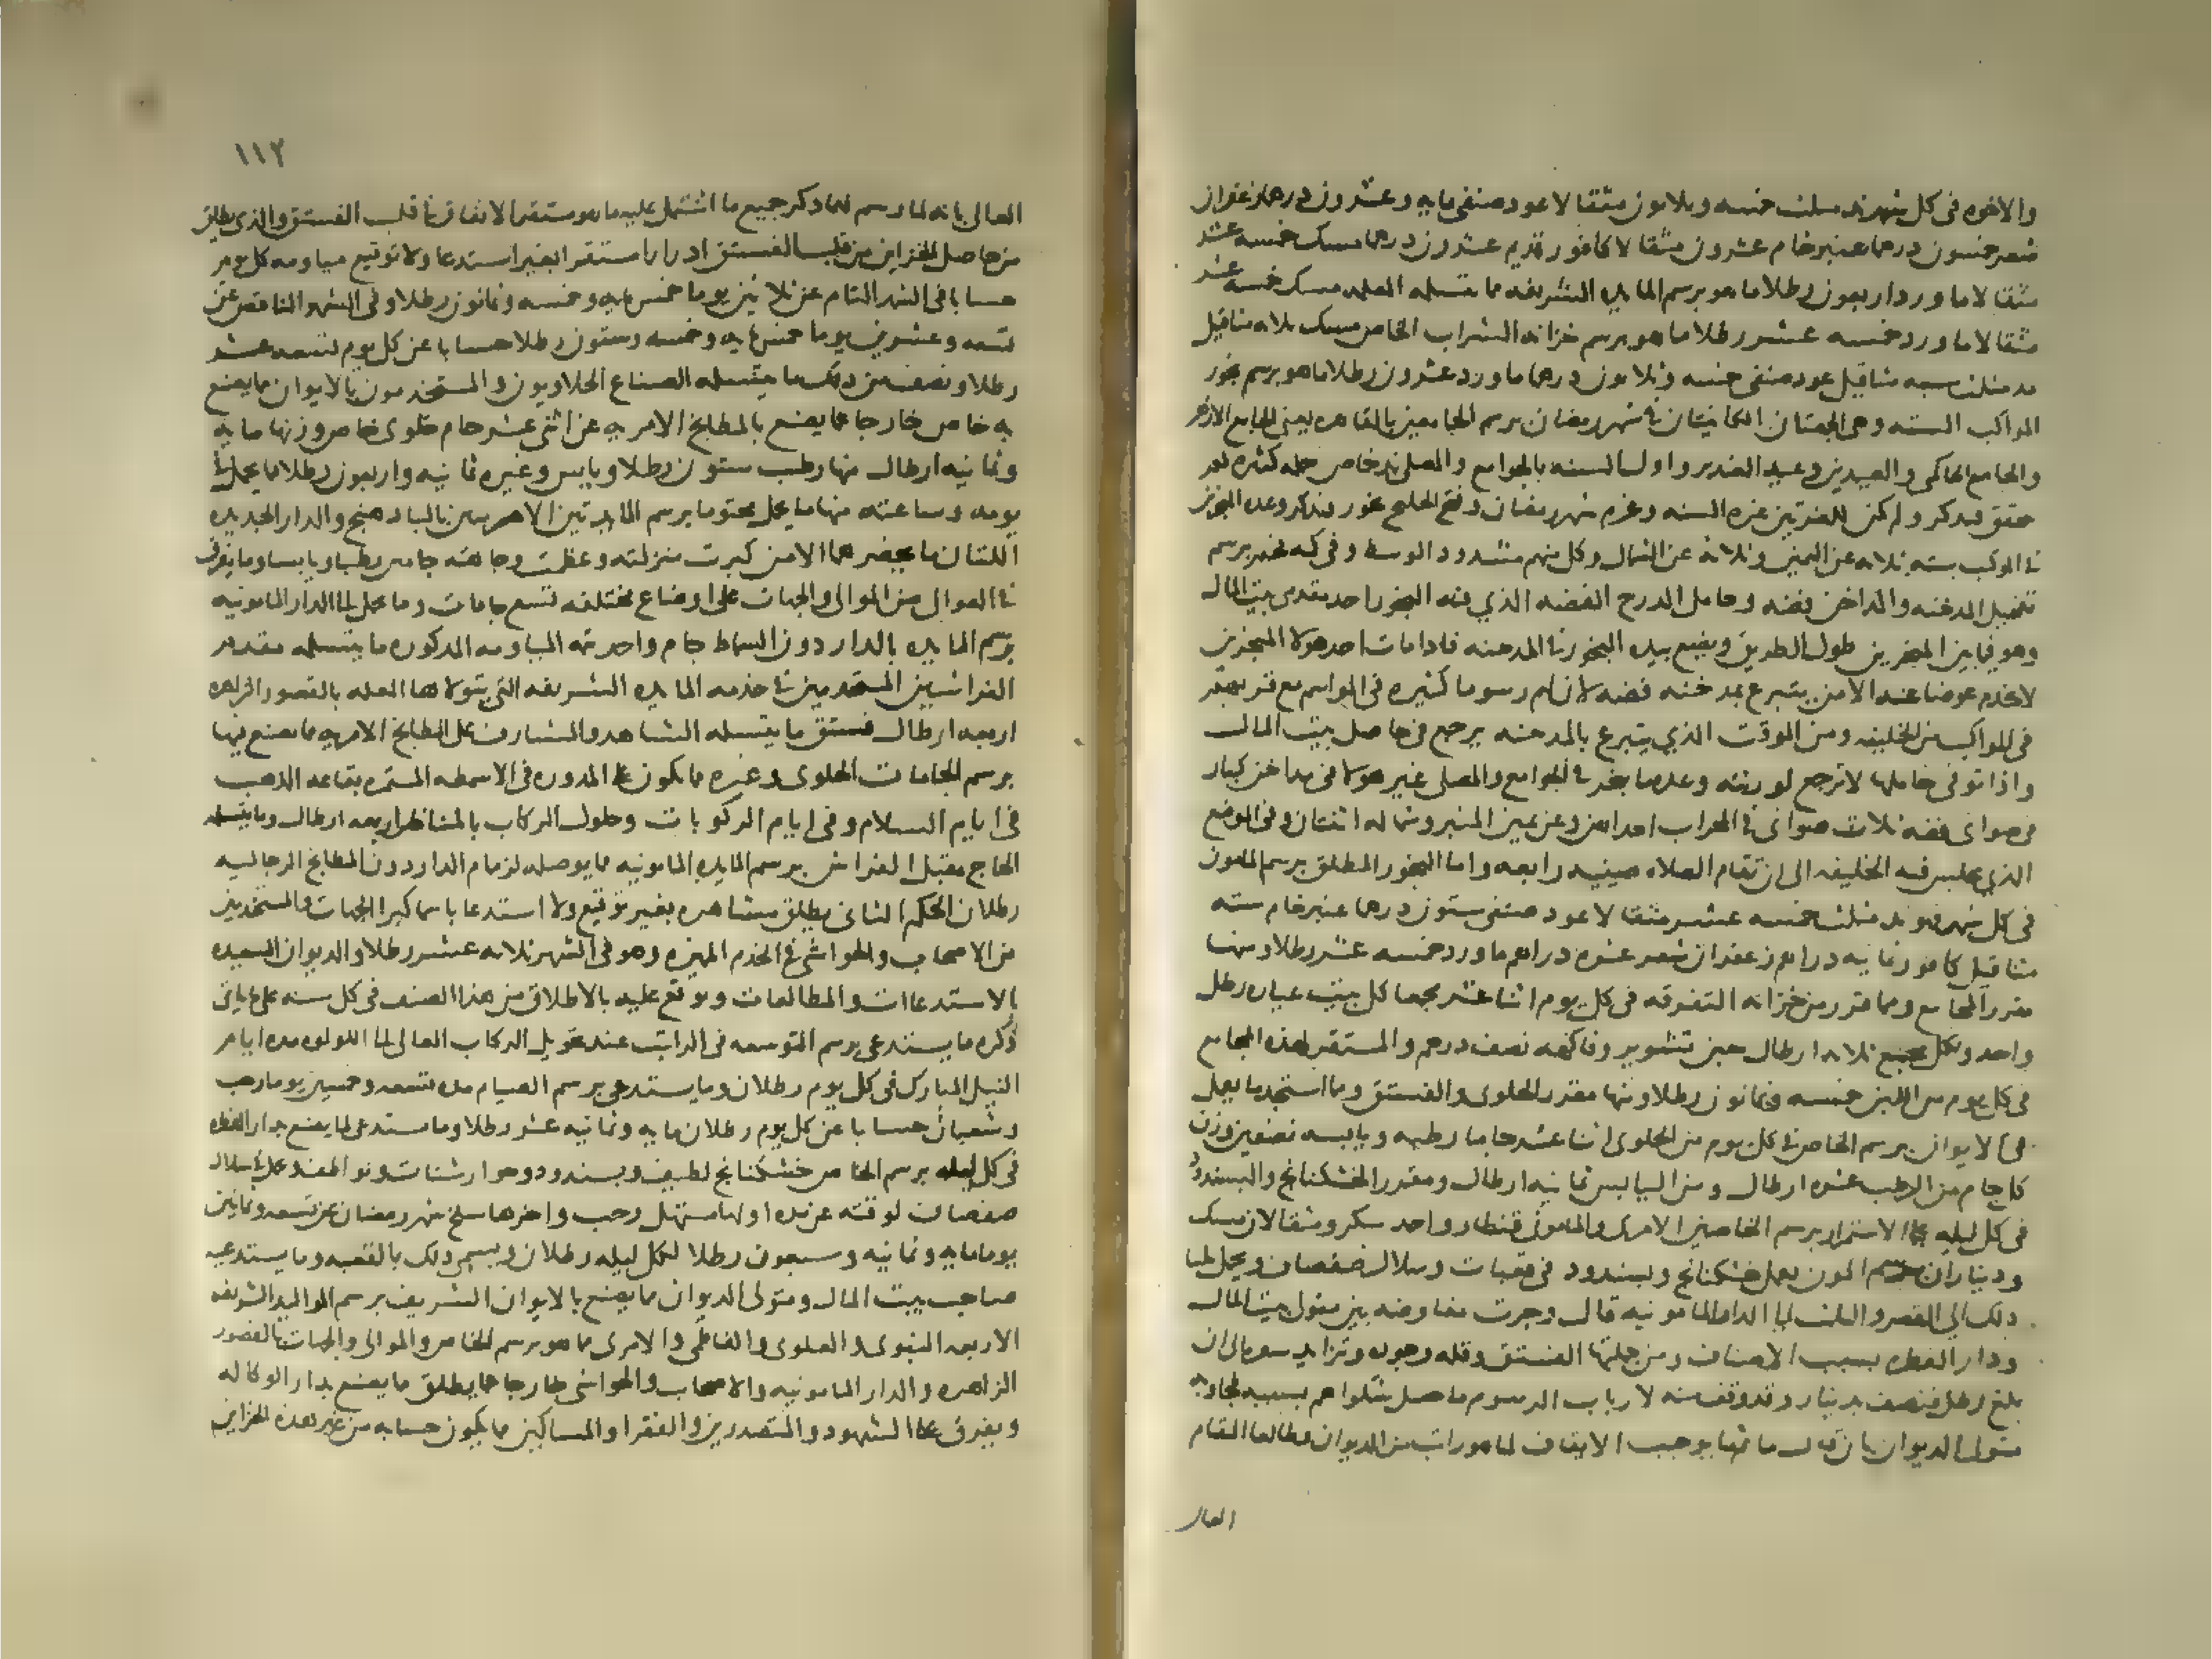 والاخوه فى كل شهر ند مثلث خمسه وثلاثون مثقالا عود صيفى مايه وعشرون درهما زعفران
شعر خمسون درهما عنبر خام عشرون مثقالا كافور قديم عشرون درهما مسك خمسه عشر
مثقالا ماورد اربعون رطلا ما هو برسم المايده الشريفه مما تتسلمه المعلمه مسك خمسه عشر
مثقالا ماورد خمسه عشر رطلا ما هو برسم خزانه الشراب الخاص مسك ثلاثه مثاقيل
ند مثلث سبعه مثاقيل عود صيفى خمسه وثلاثون درهما ماورد عشرون رطلا ما هو برسم بخور
المواكب السته وهى الجمعتان الكاينتان فى شهر رمضان برسم الجامعين بالقاهره يعنى الجامع الازهر
والجامع الحاكمى والعيدين وعيد الغدير واول السنه بالجوامع والمصلى ند خاص جمله كثيره لم
تحقق فتذكر ولم يكن للغرتين غره السنه وغره شهر رمضان وفتح الخليج بخور فيذكر وعده المبخرين
فى الموكب سته ثلاثه عن اليمين وثلاثه عن الشمال وكل منهم مشدود الوسط وفى كمه فحم برسم
تعجيل المدخنه والمداخن فضه وحامل الدرج الفضه الذي فيه البخور احد مقدمى بيت المال
وهو فيما بين المبخرين طول الطريق ويضع بيده البخور فى المدخنه فاذا مات احد هولا المبخرين
لا يخدم عوضا عنه الا من يتبرع بمدخنه فضه لان لهم رسوما كثيره فى المواسم مع قربهم
فى المواكب من الخليفه ومن الوقت الذي يتبرع بالمدخنه يرجع فى حاصل بيت المال
واذا توفى حاملها لا ترجع لورثته وعدد ما يبخر فى الجوامع والمصلى غير هولا فى مداخن كبار
فى صوانى فضه ثلاث صوانى فى المحراب احداهن وعن يمين المنبر وشماله اثنتان وفى الموضع
الذي يجلس فيه الخليفه الى ان تقام الصلاه صينيه رابعه واما البخور المطلق برسم المامون
فى كل شهر فهو ند مثلث خمسه عشر مثقالا عود صيفى ستون درهما عنبر خام سته
مثاقيل كافور ثمانيه دراهم زعفران شعر عشره دراهم ماورد خمسه عشر رطلا ومنها
مقرر المجامع ومما قرر من خزانه التفرقه فى كل يوم اثنا عشر مجمعا كل بيت عياره رطل
واحد ولكل مجمع ثلاثه ارطال جبن تشوير وفاكهه نصف درهم والمستقر لهذه المجامع
فى كل يوم من اللبن خمسه وثمانون رطلا ومنها مقرر الحلوى والفستق ومما استجد ما يعمل
فى الايوان برسم الخاص فى كل يوم من الحلوى اثنا عشر جاما رطبه ويابسه نصفين وزن
كل جام من الرطب عشره ارطال ومن اليابس ثمانيه ارطال ومقرر الخشكنانج والبسندود
فى كل ليله على الاستمرار برسم الخاصين الامرى والمامونى قنطار واحد سكر ومثقالان مسك
وديناران برسم المون يعمل خشكنانج وبسندود فى قعبات وسلال صفصاف ويحمل ثلثا
ذلك الى القصر والثلث الى الدار المامونيه قال وجرت مفاوضه بين متولى بيت المال
ودار الفطره بسبب الاصناف ومن جملتها الفستق وقله وجوده وتزايد سعره الى ان
بلغ رطل ونصف بدينار وقد وقف منه لارباب الرسوم ما حصل شكواهم بسببه فجاوبه
متولى الديوان بان قال ما ثم ما يوجب الايقاف لما هو راتب من الديوان وطالعا المقام
العالى
١١٢
العالى بانه لما رسم لهما ذكر جميع ما اشتمل عليه ما هو مستقر الانفاق فى قلب الفستق والذى يطلق
من حاصل الخزاين من قلب الفستق ادرارا مستقرا بغير استدعا ولا توقيع مياومه كل يوم
حسابا فى الشهر التام عن ثلاثين يوما خمس مايه وخمسه وثمانون رطلا وفى الشهر الناقص عن
تسعه وعشرين يوما خمس مايه وخمسه وستون رطلا حسابا عن كل يوم تسعه عشر
رطلا ونصف من ذلك ما يتسلمه الصناع الحلاويون والمستخدمون بالايوان مما يصنع
به خاص خارجا عما يصنع بالمطابخ الامريه عن اثنى عشر جام حلوى خاص وزنها مايه
وثمانيه ارطال منها رطب ستون رطلا ويابس وغيره ثمانيه واربعون رطلا مما يحمل فى
يومه وساعته منها ما يحمل مختوما برسم المايدتين الامريتين بالباذهنج والدار الجديده
اللتان ما يحضرهما الا من كبرت منزلته وعظمت وجاهته جامين رطبا ويابسا وما يفرق
فى العوال من الموالى والجهات على اوضاع مختلفه تسع جامات وما يحمل الى الدار المامونيه
برسم المايده بالدار دون السماط جام واحد تتمه المياومه المذكوره ما يتسلمه مقدم
الفراشين المستخدمين فى خدمه المايده الشريفه التى يتولاها المعلمه بالقصور الزاهره
اربعه ارطال فستق ما يتسلمه الشاهد والمشارف على المطابخ الامريه مما يصنع فيها
برسم الجامات الحلوى وغيره مما يكون على المدوره فى الاسمطه المستمره بقاعه الذهب
فى ايام السلام وفى ايام الركوبات وحلول الركاب بالمناظر اربعه ارطال وما يتسلمه
الحاج مقبل الفراش برسم المايده المامونيه مما يوصله لزمام الدار دون المطابخ الرجاليه
رطلان الحكم الثانى يطلق مشاهره بغير توقيع ولا استدعا باسما كبرا الجهات والمستخدمين
من الاصحاب والحواشى فى الخدم المميزه وهو فى الشهر ثلاثه عشر رطلا والديوان السعيد
بالاستدعاات والمطالعات ويوقع عليه بالاطلاق من هذا الصنف فى كل سنه على ما ياتى
ذكره ما يستدعى برسم التوسعه فى الراتب عند تحويل الركاب العالى الى اللولوه مده ايام
النيل المبارك فى كل يوم رطلان وما يستدعى برسم الصيام مده تسعه وخمسين يوما رجب
وشعبان حسابا عن كل يوم رطلان مايه وثمانيه عشر رطلا وما يستدعى لما يصنع بدار الفطره
فى كل ليله برسم الخاص خشكنانج لطيف وبسندود وجوارشنات ونواطف ويحمل فى سلال
صفصاف لوقته عن مده اولها مستهل رجب واخرها سلخ شهر رمضان عن تسعه وثمانين
يوما مايه وثمانيه وسبعون رطلا لكل ليله رطلان ويسمى ذلك بالتعبيه وما يستدعيه
صاحب بيت المال ومتولى الديوان مما يصنع بالايوان الشريف برسم الموالد الشريفه
الاربعه النبوى والعلوى والفاطمى والامرى مما هو برسم الخاص والموالى والجهات بالقصور
الزاهره والدار المامونيه والاصحاب والحواشى خارجا عما يطلق مما يصنع بدار الوكاله
ويفرق على الشهود والمتصدرين والفقرا والمساكين مما يكون حسابه من غير هذه الخزاين